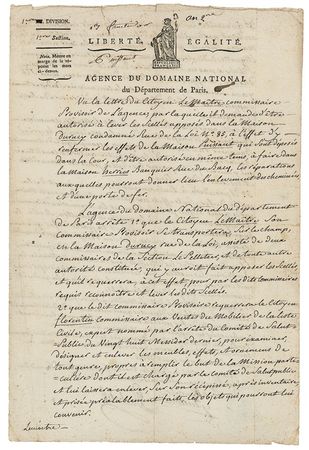 1.ere DIVISION.
1.ere Section.
Nota. Mettre en marge de la réponse les mots ci-dessus.
an 2.e
LIBERTÉ, ÉGALITÉ.
AGENCE DU DOMAINE NATIONAL
du Département de Paris.
Vu la lettre du Citoyen Le Maitre commissaire
Provisoir de l'agence par laquelle il demande d'être
autorisé à lever les Scellés apposés dans la Maison
Duruey condamné Rue de la Loi N.º 88, à l'effet d'y
renfermer les effets de la Maison Puissant qui Sont déposés
dans la Cour, et d'être autorisé en même tems, à faire dans
la Maison herries Banquier Rue du Bacq, les réparations
auxquelles pourront donner lieu l'enlevement des cheminées
et d'une porte de fer.
L'agence du domaine National du département
de Paris arrête 1.º que le Citoyen Le Maitre Son
Commissaire Provisoir Se transportera Sur le champ,
en la Maison Duruey rue de la Loi, assisté de deux
Commissaires de la Section Le Pelletier, et de toute autre
autorité Constituée, qui y auroit fait apposer les Scellés,
et qu'il requerrera, à cet effet, pour par les dits Commissaires
requis reconnoitre et lever les dits Scellés.
2.º que le dit commissaire Provisoire requerrera le Citoyen
florentin Commissaire aux Ventes du Mobilier de la liste
Civile, expert nommé par l'arrêté du Comité de Salut
Public du Vingt huit Messidor dernier, pour examiner,
désigner et enlever les meubles, effets, et ornemens de
tout genre, propres à remplir le but de la Mission
dont il est chargé par le Comité de Salut public
et lui laissera enlever, Sur Son récépissé, après inventaire,
et prisée préalablement faits, les objets qui pourront lui
convenir.